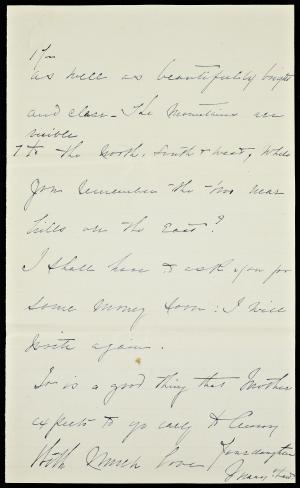 as well as beautifully bright
and clear - The Mountains are
visible
to the North, South & West, While
you remember the two near
hills on the East?
I shall have to ask you for
some money soon: I will
write again.
It is a good thing that Mother
expects to go early to
With Much love Your daughter